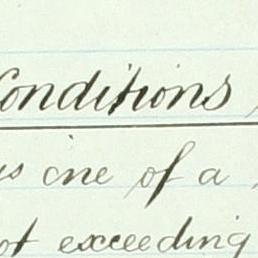 Conditions
is one of a
not exceeding